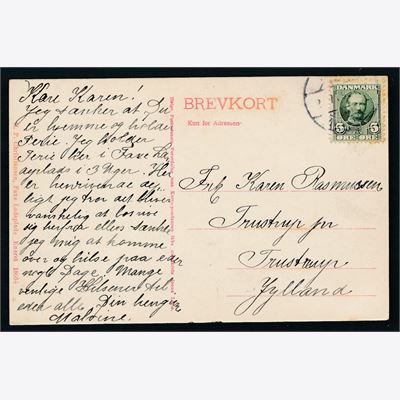 Kære Karen!
Jeg tænker at Du
er hjemme og holder
Ferie. Jeg holder
Ferie her i Faxe La-
deplads i 3 Uger. Her
er henrivende dej-
ligt jeg tror det bliver
vanskelig at losrive
sig herfra ellers tænkte
jeg mig at komme
over og hilse paa eder
nogle Dage. Mange
venlige Hilsener til
eder alle. Din hengivne
Malvine.
BREVKORT
Kun for Adressen
DANMARK
5 5
ØRE ØRE
Frk Karen Rasmussen
Trustrup pr
Trustrup
Jylland